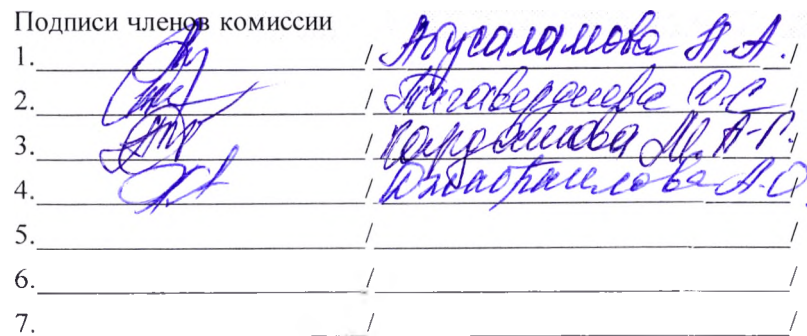 Подписи членов комиссии
1. / Абусаламова Н.А. /
2. / Тагавердиева Д.С /
3. / Кардашова М.А-Г. /
4. / Джабраилова А.О. /
5. / /
6. / /
7. / /